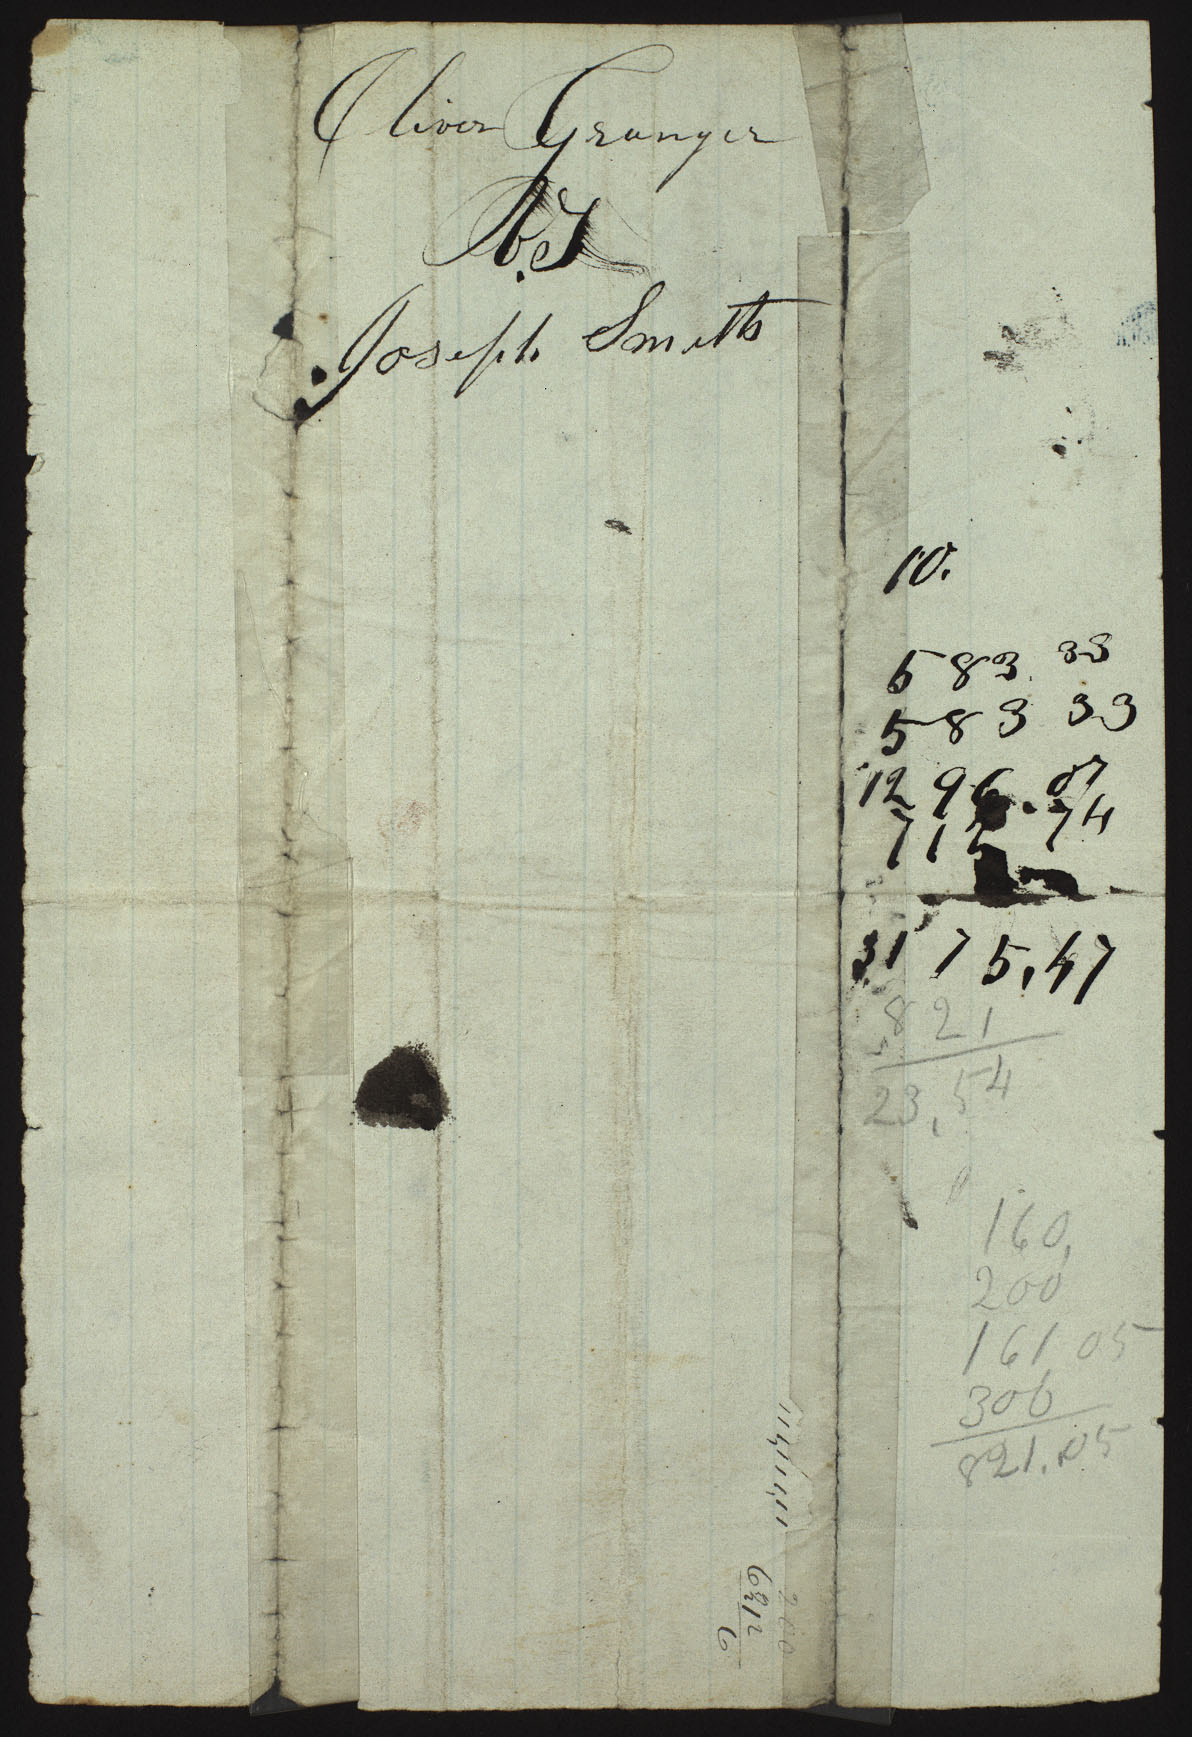 Oliver Granger
Joseph Smith
10.
583. 33
583 33
1296.07
712.74
3175.47
821
23,54
160,
200
161 05
300
821.05
200
6